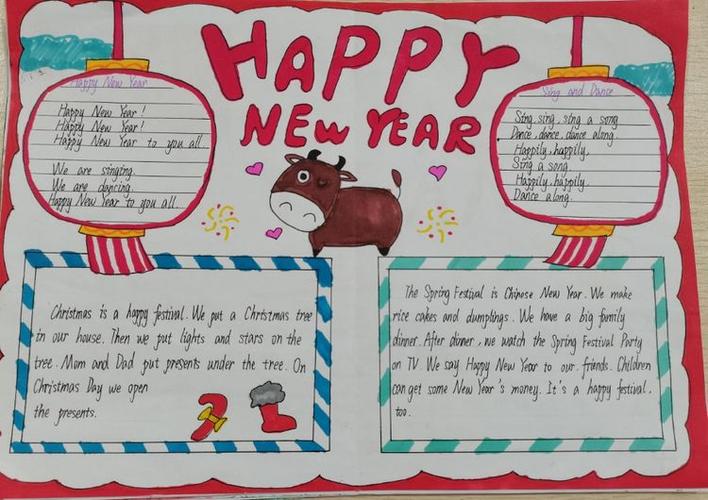 HAPPY
NEW YEAR
Happy New Year
Happy New Year!
Happy New Year!
Happy New Year to you all.
We are singing.
We are dancing.
Happy New Year to you all.
Sing and Dance
Sing, sing, sing a song
Dance, dance, dance along.
Happily, happily,
Sing a song.
Happily, happily,
Dance along.
Christmas is a happy festival. We put a Christmas tree
in our house. Then we put lights and stars on the
tree. Mom and Dad put presents under the tree. On
Christmas Day we open
the presents.
The Spring Festival is Chinese New Year. We make
rice cakes and dumplings. We have a big family
dinner. After dinner, we watch the Spring Festival Party
on TV. We say Happy New Year to our friends. Children
can get some New Year's money. It's a happy festival,
too.